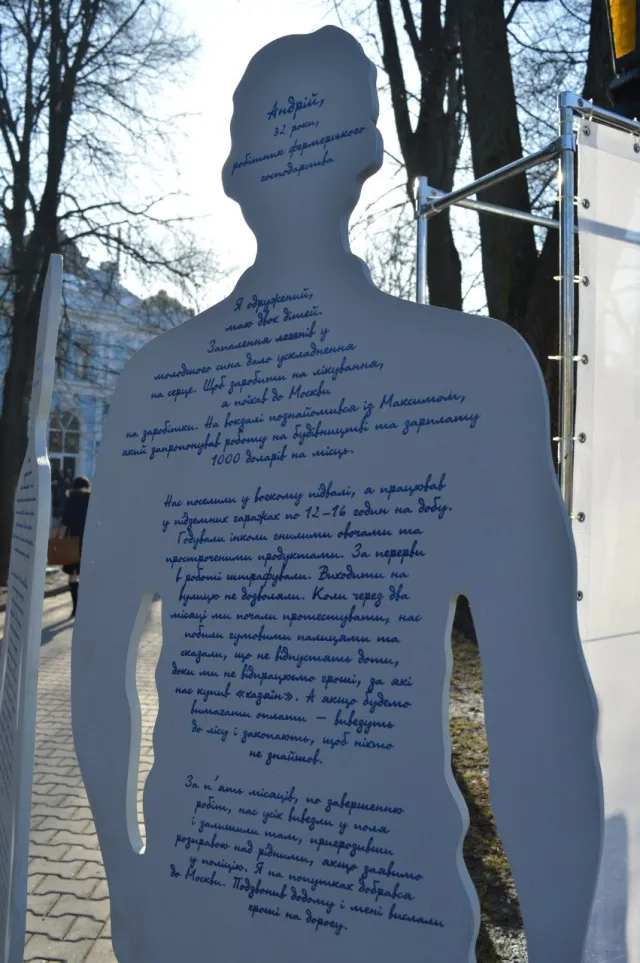 Андрій,
32 роки,
робітник фермерського
господарства
Я одружений,
маю двох дітей.
Запалення легенів у
молодшого сина дало ускладнення
на серце. Щоб заробити на лікування,
я поїхав до Москви
на заробітки. На вокзалі познайомився із Максимом,
який запропонував роботу на будівництві та зарплату
1000 доларів на місць.
Нас поселили у вогкому підвалі, я працював
у підземних гаражах по 12-16 годин на добу.
Годували інколи гнилими овочами та
простроченими продуктами. За перерви
в роботі штрафували. Виходити на
вулицю не дозволяли. Коли через два
місяці ми почали протестувати, нас
побили гумовими палицями та
сказали, що не відпустять доти,
доки ми не відпрацюємо гроші, за які
нас купив «хазяїн». А якщо будемо
вимагати оплати — вивезуть
до лісу і закопають, щоб ніхто
не знайшов.
За п'ять місяців, по завершенню
робіт, нас усіх вивезли у поля
і залишили там, пригрозивши
розправою над рідними, якщо заявимо
у поліцію. Я на попутках добрався
до Москви. Подзвонив додому і мені вислали
гроші на дорогу.